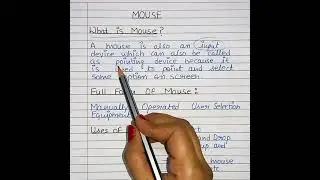 MOUSE
What is Mouse?
A mouse is also an input
device which can also be called
as pointing device because it
is used to point and select
some option on screen.
Full Form Of Mouse:
Manually Operated User Selection
Equipment
Uses of
and Drop
up and
mouse